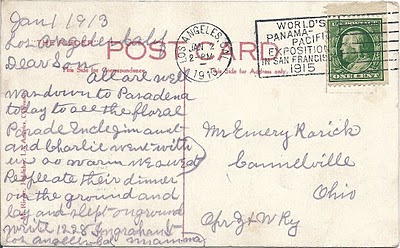 Jan 1 1913
Los Angeles Calif
Dear Son
all are well
was down to Pasadena
today to see the floral
Parade Uncle jim aunt
and Charlie went with
us so warm we
People ate their dinner
on the ground and
lay and slept on ground
write 1228 Ingraham st
Los angeles Cal mamma
POST CARD
This Side for Correspondence.
This Side for Address only.
LOS ANGELES, CAL.
JAN 2
2 PM
1913
WORLD'S
PANAMA-
PACIFIC
EXPOSITION
IN SAN FRANCISCO
1915
ONE CENT
Mr Emery
Cannelville
Ohio
Z & W Ry